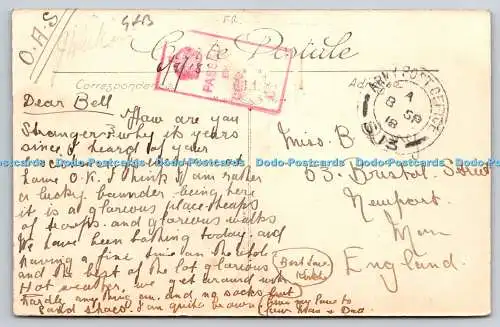 O.A.S
G&B
FR.
Carte Postale
Correspondence
PASSED
ARMY POST OFFICE
A
8 SP
18
Dear Bell
How are you
Stranger? why its years
since I heard of your
home O.K. I think I am rather
a lucky bounder being here
it is a glorious place heaps
of and glorious walks
We have been bathing today and
having a fine time on the whole
and the best of the lot glorious
Hot weather, we get around with
hardly anything on. and no socks but
sand shoes. I am quite brown
Best love
Give my love to
your Mam & Dad
Miss B
53. Bristol Street
Newport
Mon
England.
Dado-Postcards Dado-Postcards Dado-Postcards Dado-Postcards Dado-Postcards